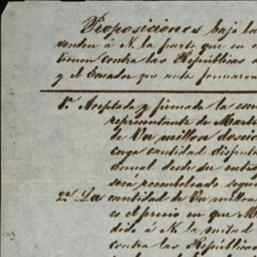 Proposiciones bajo la
venden á N. la parte que en
tienen contra las Repúblicas
y el Ecuador que ante formaron
1a. Aceptada y firmada la
representante de
de Un millon
cuya cantidad
anual desde su
será reembolsado
2a. La cantidad de Un millon
es el precio en que M
dido á N. la mitad
contra las República